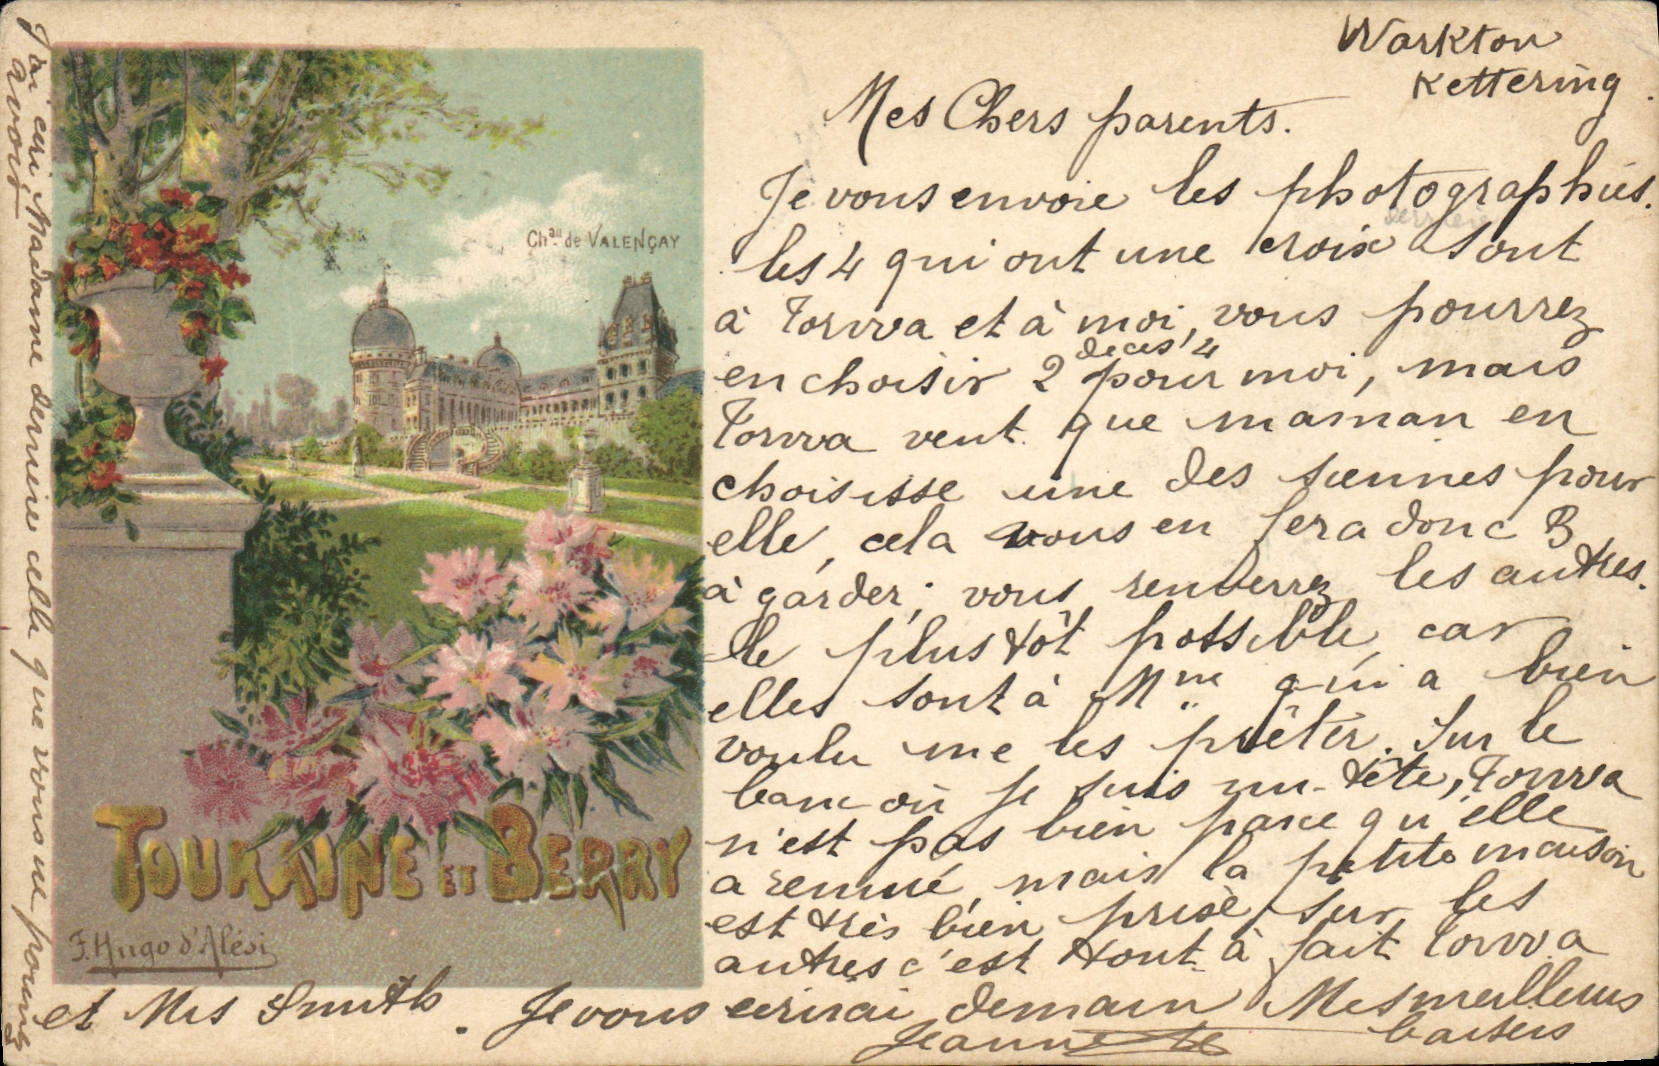 Warkton
Kettering.
Mes Chers parents.
Je vous envoie les photographies.
derrière
les 4 qui ont une croix sont
à Torvva et à moi, vous pourrez
de ces 4
en choisir 2 pour moi, mais
Torvva veut que maman en
choisisse une des siennes pour
elle, cela vous en fera donc 3
à garder; vous renverrez les autres.
le plus tôt possible, car
elles sont à Mme qui a bien
voulu me les prêter. Sur le
banc où je suis nu-tête, Torvva
n'est pas bien parce qu'elle
a remué, mais la petite maison
est très bien prise, sur les
autres c'est tout à fait Torvva
et Mrs Smith. Je vous écrirai demain Mes meilleurs
baisers
Jeannette
J'ai cri Madame derrière celle que vous ne pouvez
avoir
Chau de VALENÇAY
TOURAINE ET BERRY
F. Hugo d'Alési